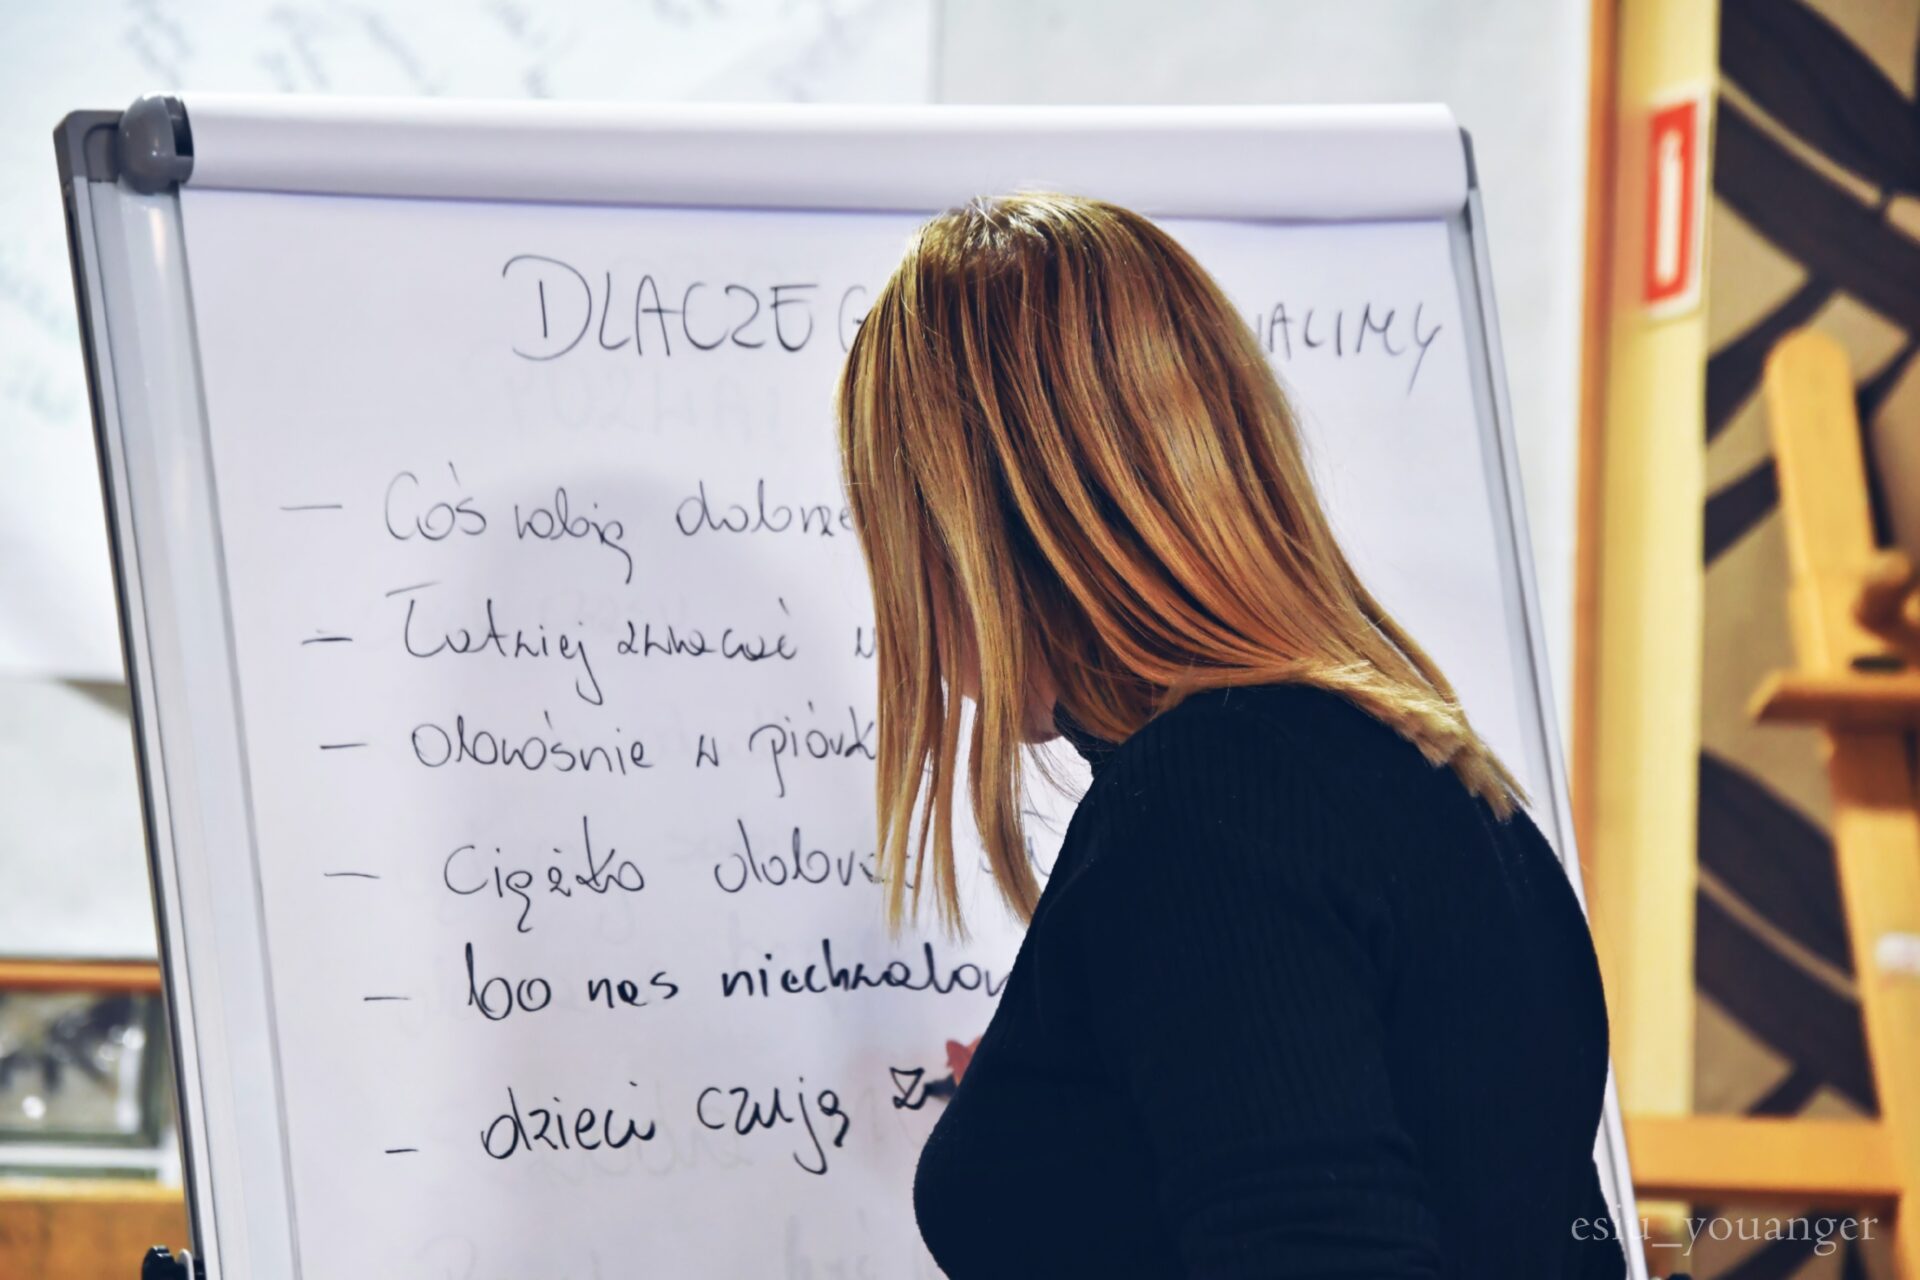 DLACZEG WALIMY
- Coś robią dobrze
- Łatwiej zwracać
- obrośnie w piórk
- Ciężko dobra
- bo nas niechwalon
- dzieci czują z
esiu_youanger